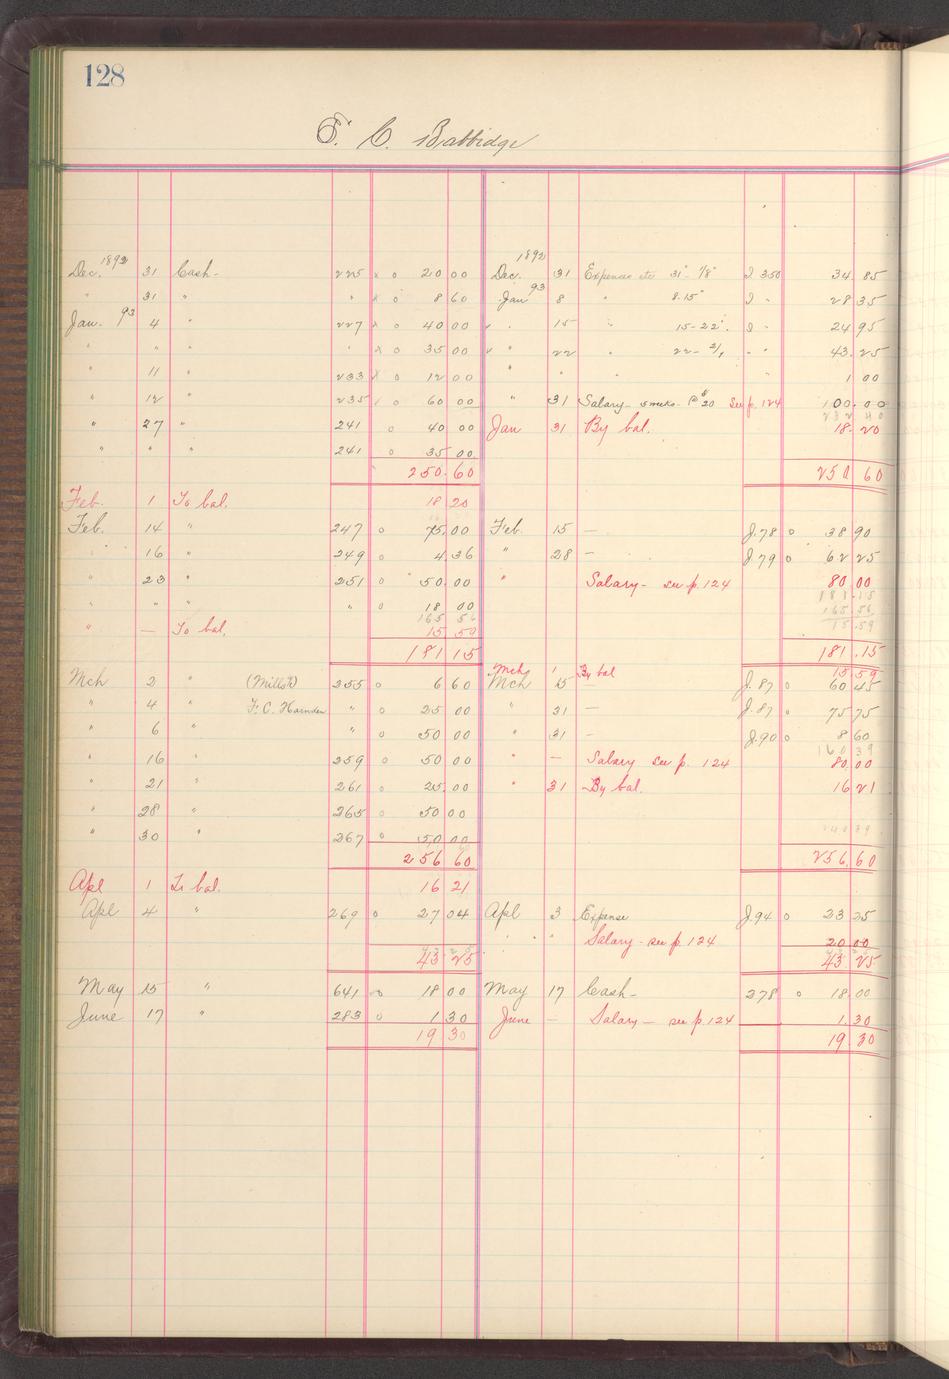 128
E. C. Babbidge
Dec. 1892 31 Cash- 225 x o 20 00 Dec. 1892 31 Expenses etc 31"-1/8" J 350 34.85
" 31 " " x o 8 60 Jan 93 8 " 8.15" J " 28 35
Jan. 93 4 " 227 x o 40 00 " 15 " 15-22". J " 24 95
" " " " x o 35 00 " 22 " 22-2/1 " " 43.25
" 11 " 233 x o 12 00 " " " 1 00
" 12 " 235 o 60 00 " 31 Salary- 5 weeks- @ $20 See p. 124 100.00
232 40
" 27 " 241 o 40 00 Jan 31 By bal. 18.20
" " " 241 o 35 00
250.60 250 60
Feb. 1 To bal. 18 20
Feb. 14 " 247 o 75.00 Feb. 15 — J.78 o 38 90
16 " 249 o 4.36 " 28 — J 79 o 62 25
" 23 " 251 o 50.00 " Salary- see p. 124 80 00
" " " " o 18 00 181.15
165 56 165.56
" — To bal. 15 59 15.59
181 15 181.15
Mch 1 By bal 15.59
Mch 2 " 255 o 6 60 Mch 15 — J.87 o 60 45
" 4 " F. C. Harnden " o 25 00 " 31 — J.87 o 75 75
" 6 " " o 50 00 " 31 — J.90 o 8 60
160 39
" 16 " 259 o 50 00 " — Salary see p. 124 80.00
" 21 " 261 o 25.00 " 31 By bal. 16 21
" 28 " 265 o 50 00
" 30 " 267 o 50 00 240 39
256 60 256.60
Apl 1 To bal. 16 21
Apl 4 " 269 o 27 04 Apl 3 Expense J.94 o 23 25
" " Salary- see p. 124 20 00
43 25 43 25
May 15 " 641 o 18 00 May 17 Cash- 278 o 18.00
June 17 " 283 o 1.30 June — Salary- see p. 124 1.30
19.30 19.30